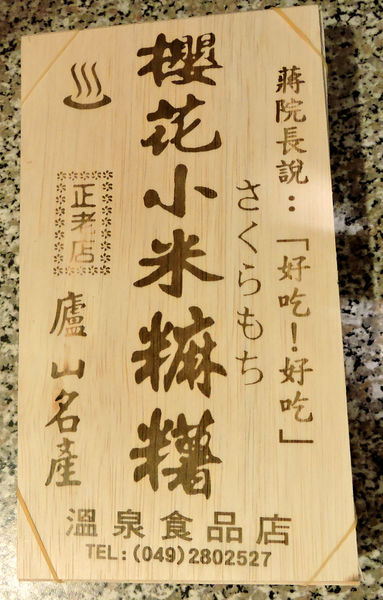 蔣院長說：「好吃！好吃」
さくらもち
櫻花小米麻糬
正老店
廬山名產
溫泉食品店
TEL:(049)2802527